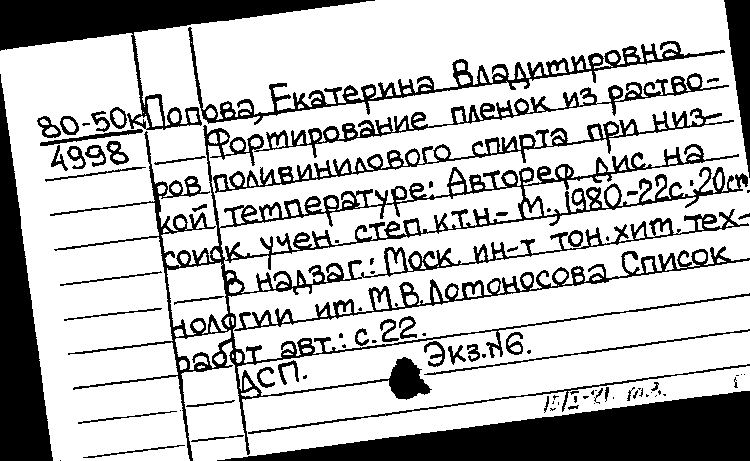 80-50к Попова, Екатерина Владимировна
4998 Формирование пленок из раство-
ров поливинилового спирта при низ-
кой температуре: Автореф. дис. на
соиск. учен. степ. к.т.н.- М., 1980.-22с.; 20см
В надзаг.: Моск. ин-т тон. хим. тех-
нологии им. М.В. Ломоносова Список
работ авт.: с.22.
ДСП. Экз.№6.